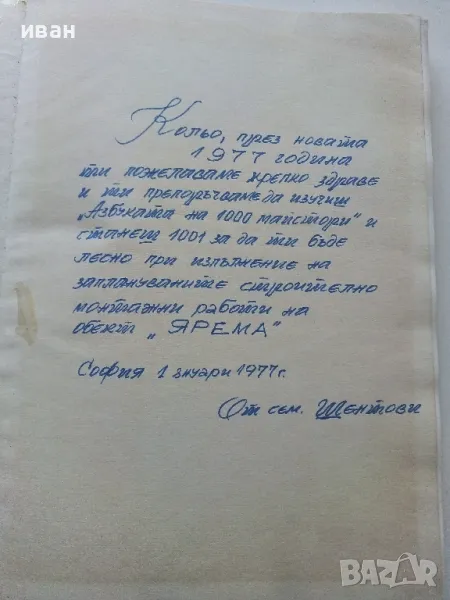 иван
Кольо, през новата
1977 година
ти пожелаваме крепко здраве
и ти препоръчваме да изучиш
„Азбуката на 1000 майстори" и
станеш 1001 за да ти бъде
лесно при изпълнение на
запланувачите строително
монтажни работи на
обект „ЯРЕМА"
София 1 януари 1977 г.
От сем. Шентови
BAZAR